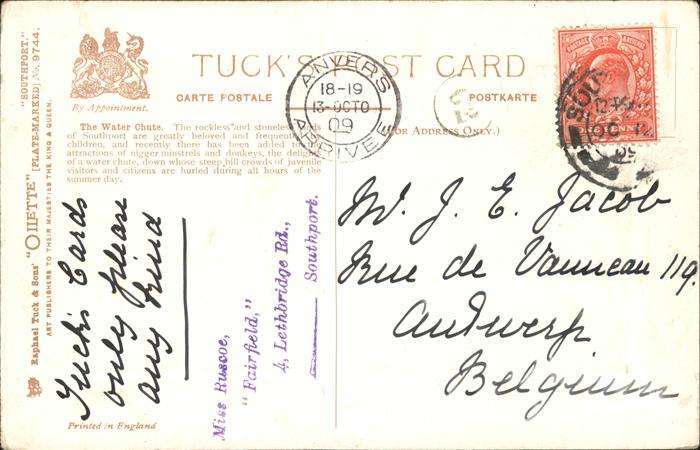 TUCK'S POST CARD
By Appointment.
CARTE POSTALE
POSTKARTE
(FOR ADDRESS ONLY.)
The Water Chute. The rockless and stoneless
of Southport are greatly beloved and frequented by
children, and recently there has been added to the
attractions of nigger minstrels and donkeys, the delight
of a water chute, down whose steep hill crowds of juvenile
visitors and citizens are hurled during all hours of the
summer day.
Raphael Tuck & Sons' "OILETTE" [PLATE-MARKED] "SOUTHPORT." No. 9744.
ART PUBLISHERS TO THEIR MAJESTIES THE KING & QUEEN.
Printed in England
Tucks Cards
only please
any kind
Miss Ruscoe,
"Fairfield,"
4, Lethbridge Rd.,
Southport.
ANVERS
18-19
13-OCTO
09
ARRIVEE
POSTAGE
M. J. E. Jacob
Rue de Vanneau 119.
Antwerp
Belgium